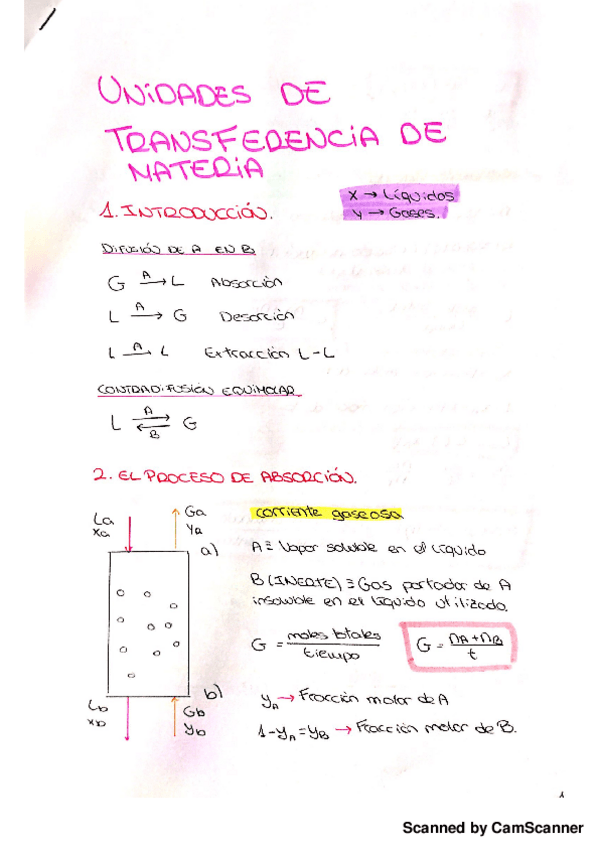 UNIDADES DE
TRANSFERENCIA DE
MATERIA
1. INTRODUCCIÓN.
x → Líquidos
y → Gases.
DIFUSIÓN DE A EN B
G A→ L Absorción
L A→ G Desorción
L A→ L Extracción L-L
CONTRADIFUSIÓN EQUIMOLAR
L A⇄B G
2. EL PROCESO DE ABSORCIÓN.
La
xa
Ga
ya
a)
b)
Lb
xb
Gb
yb
corriente gaseosa
A ≡ Vapor soluble en el líquido
B (INERTE) ≡ Gas portador de A
insoluble en el líquido utilizado.
G = moles totales / tiempo
G = nA + nB / t
yA → Fracción molar de A
1-yA = yB → Fracción molar de B.
1
Scanned by CamScanner